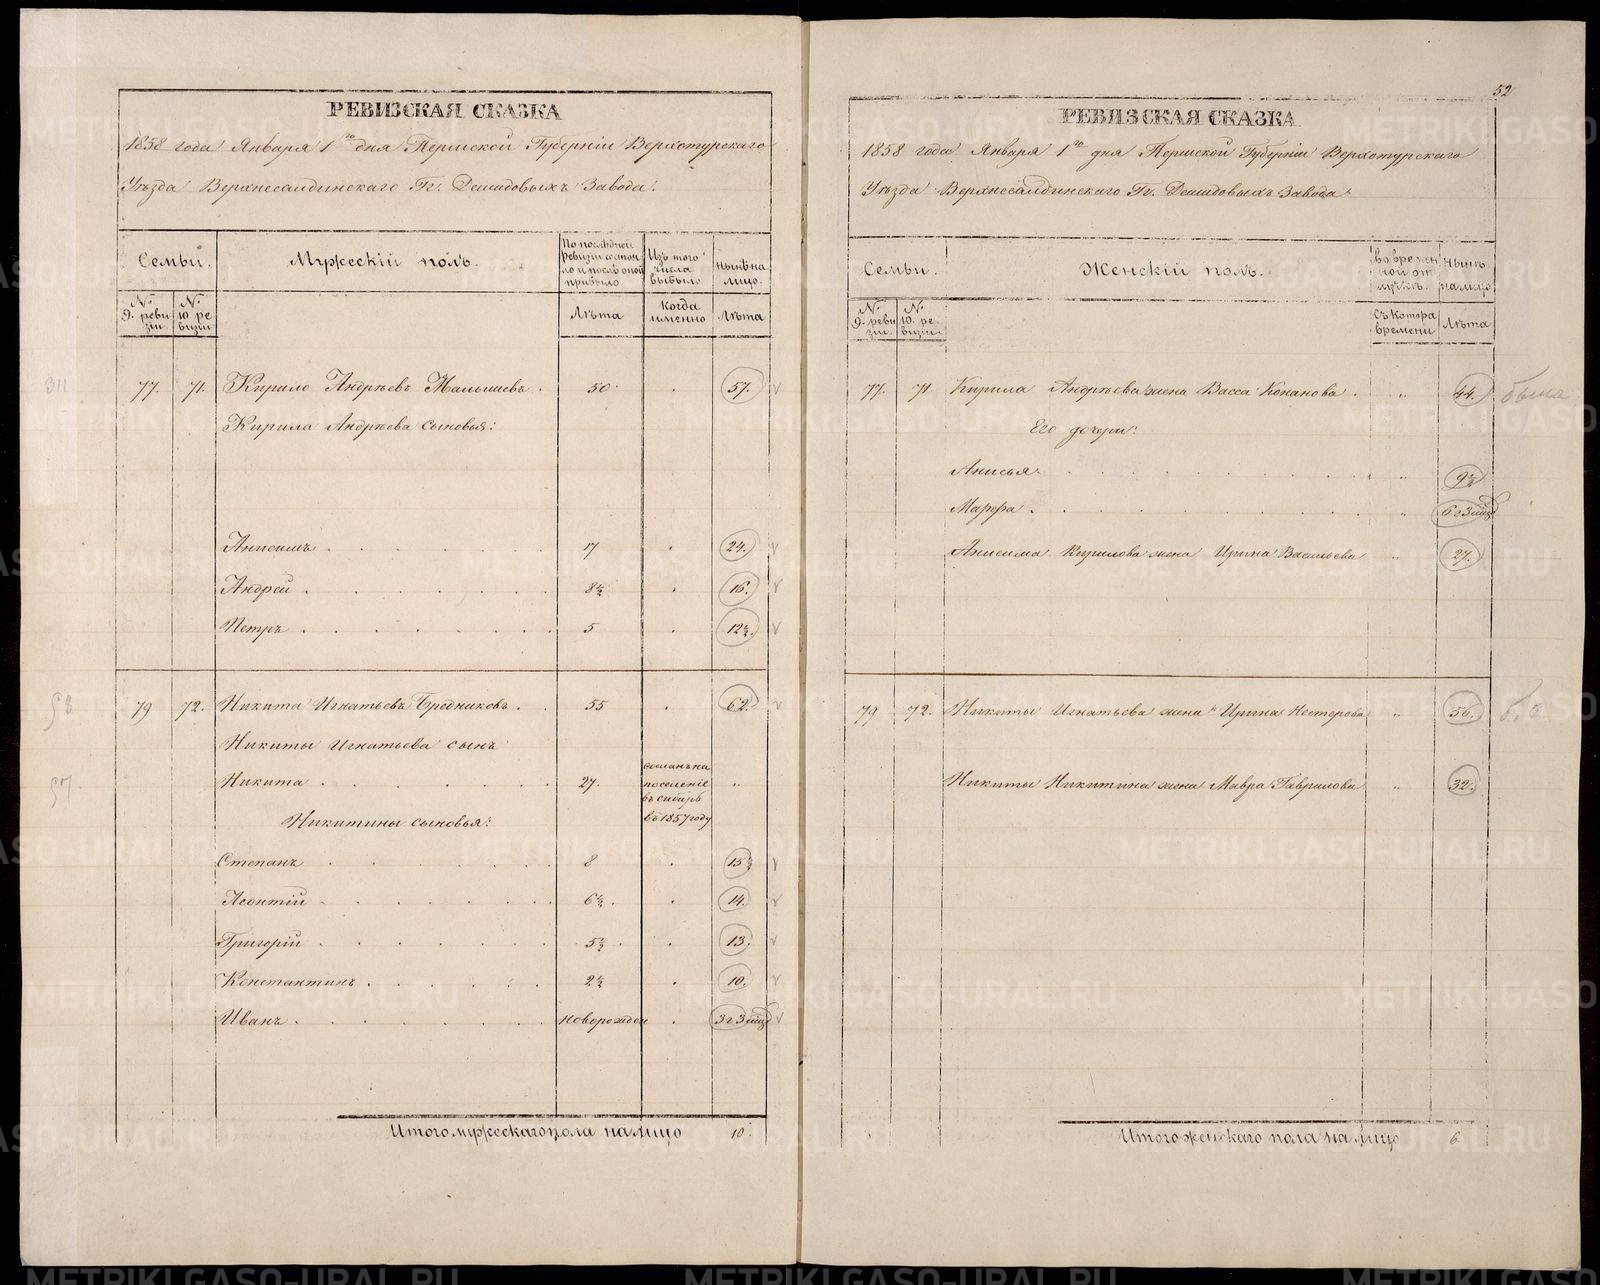 РЕВИЗСКАЯ СКАЗКА
1858 года Января 1го дня Пермской Губерніи Верхотурскаго
Уѣзда Верхнесалдинскаго Гг. Демидовыхъ Завода.
Семьи.
Мужескій полъ.
По послѣдней ревизіи состояло и послѣ оной прибыло
Изъ того числа выбыло
Нынѣ на лицо.
№ 9. ревизіи
№ 10 ревизіи
Лѣта
Когда именно
Лѣта
77. 71. Кирило Андрѣевъ Малышевъ . 50 . 57.
Кирила Андрѣева сыновья:
Анисимъ 17 . 24.
Андрей 8½ . 16.
Петръ 5 . 12½.
79 72. Никита Игнатьевъ Бредниковъ . 55 . 62.
Никиты Игнатьева сынъ
Никита 27. сосланъ на поселеніе въ Сибирь въ 1857 году "
Никитины сыновья:
Степанъ 8 . 15½
Леонтій 6½ . 14.
Григорій 5½ . 13.
Константинъ 2½ . 10.
Иванъ новорожден . 3 г 3 мѣс
Итого мужескаго пола на лицо 10
52
РЕВИЗСКАЯ СКАЗКА
1858 года Января 1го дня Пермской Губерніи Верхотурскаго
Уѣзда Верхнесалдинскаго Гг. Демидовыхъ Завода
Семьи.
Женскій полъ.
Во временной отлучкѣ.
Нынѣ на лицо.
№ 9. ревизіи
№ 10. ревизіи
Съ котора времени
Лѣта
77. 71 Кирила Андрѣева жена Васса Коканова . " 44.
Его дочери:
Анисья . " 9½
Марфа . " 6 г 3 мѣс
Анисима Кирилова жена Ирина Васильева " 27.
79 72. Никиты Игнатьева жена Ирина Нестерова " 56.
Никиты Никитина жена Мавра Гаврилова " 32.
Итого женскаго пола на лицо 6.
METRIKI.GASO-URAL.RU